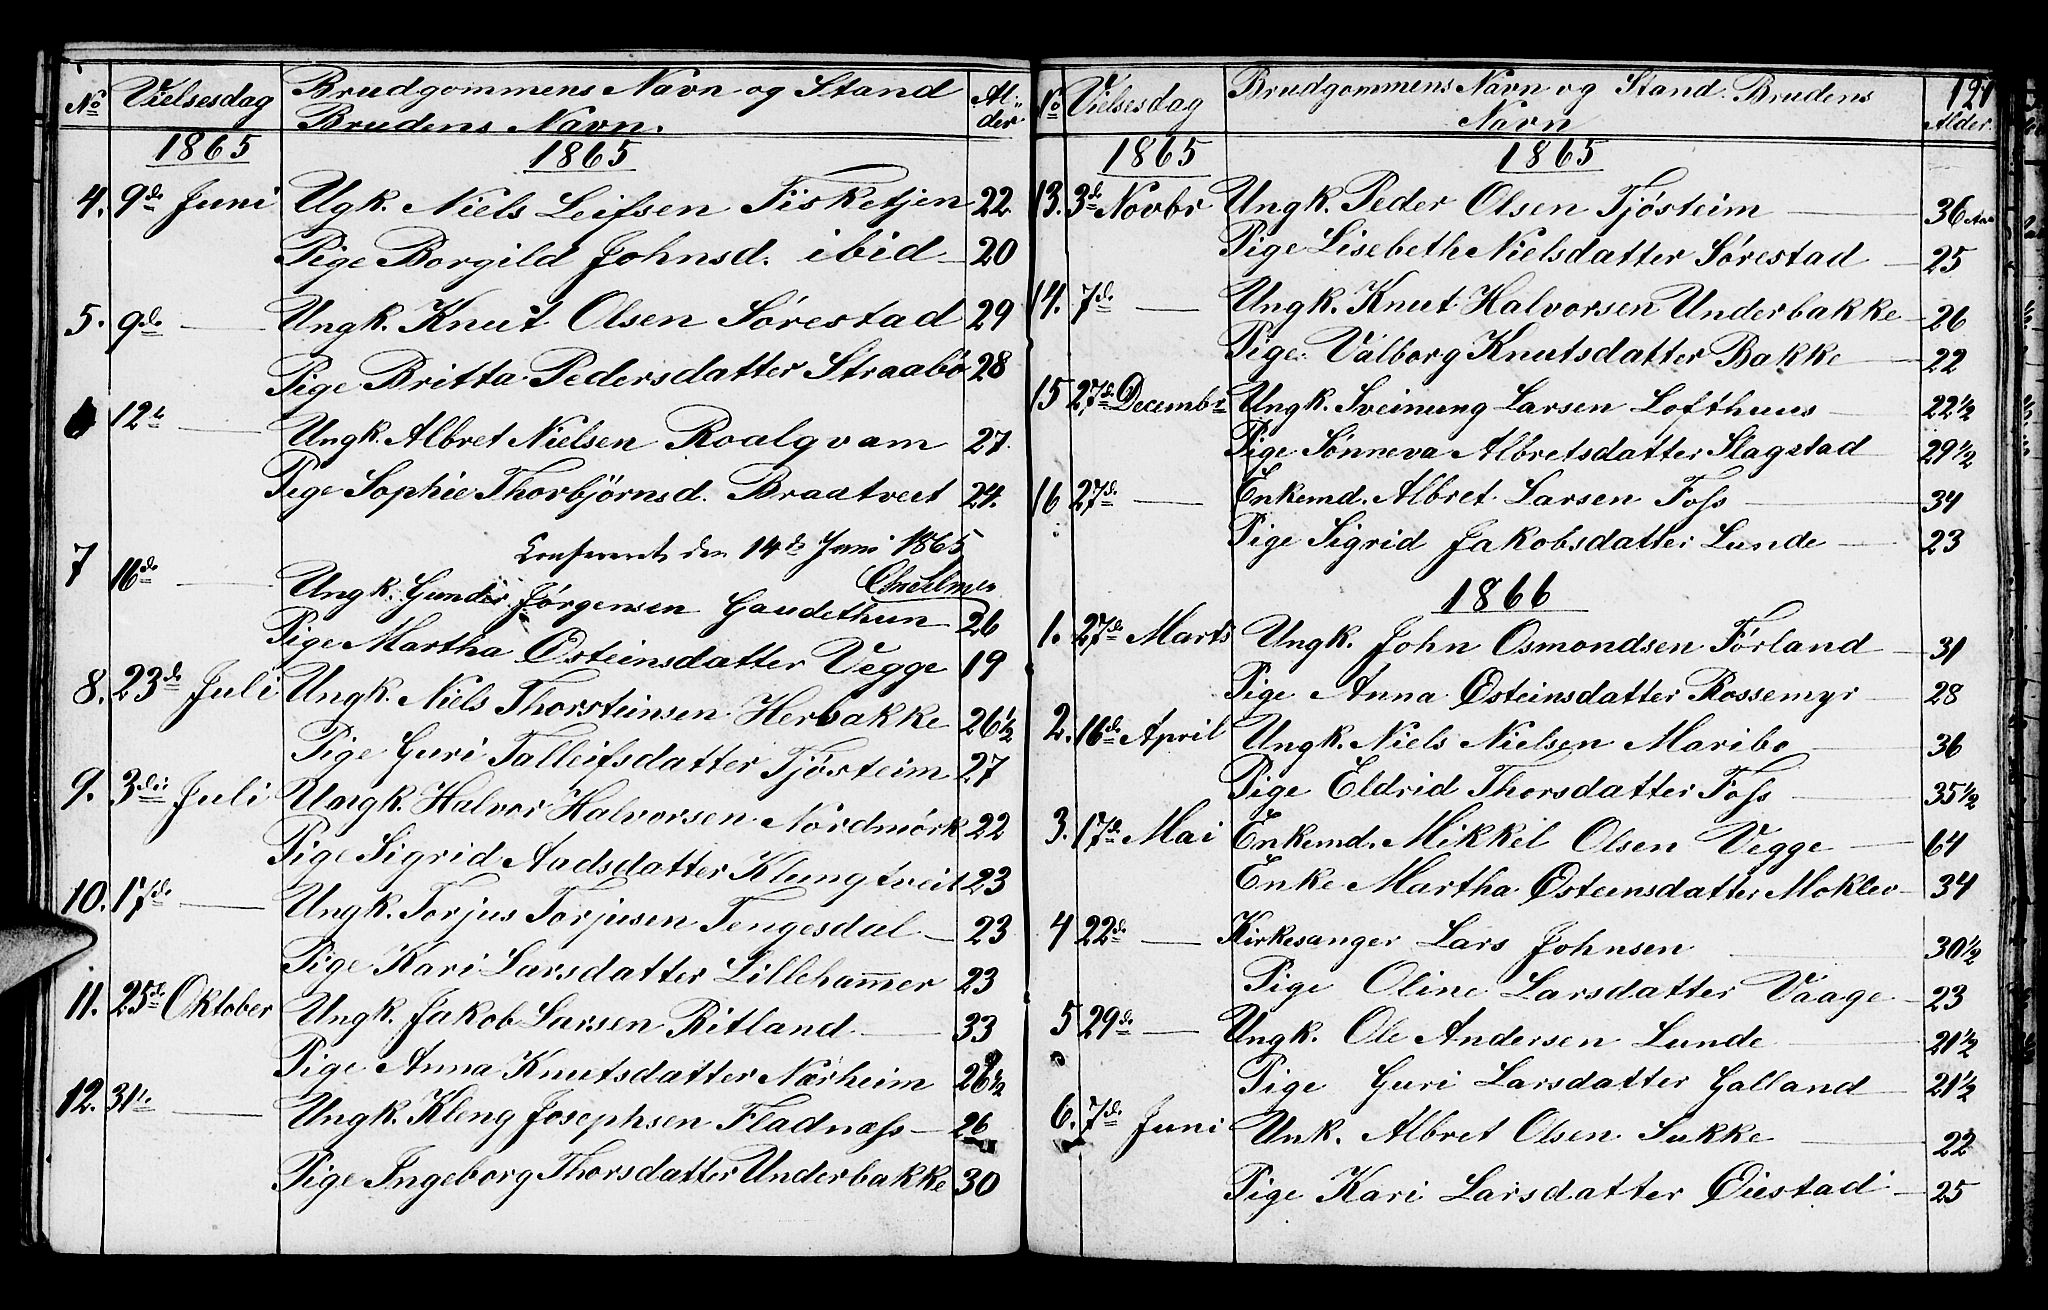 No Vielsesdag Brudgommens Navn og Stand Brudens Navn. Al- der
1865 1865
4. 9de Juni Ugk. Niels Leifsen Fisketjen 22
Pige Borgild Johnsd. ibid 20
5. 9de — Ungk. Knut Olsen Sørestad 29
Pige Britta Pedersdatter Straabø 28
6 12te — Ungk. Albret Nielsen Roalqvam 27.
Pige Sophie Thorbjörnsd. Braatveit 24.
Confereret den 14de Juni 1865
7 16de — Ungk. Gunder Jørgensen Gaudethun 26
Pige Martha Østeinsdatter Vegge 19
8. 23de Juli Ungk. Niels Thorsteinsen Herbakke 26½
Pige Guri Talleifsdatter Tjøsteim 27
9. 3die Juli Ungk. Halvor Halvorsen Nordmørk 22
Pige Sigrid Aadsdatter Klungtveit 23
10. 17de — Ungk. Torjus Torjusen Tengesdal — 23
Pige Kari Larsdatter Lillehammer 23
11. 25de Oktober Ungk. Jakob Larsen Ritland — 33
Pige Anna Knutsdatter Nærheim 26½
12. 31te — Ungk. Kleng Josephsen Fladnæss — 26
Pige Ingeborg Thorsdatter Underbakke 30
No Vielsesdag Brudgommens Navn og Stand. Brudens Navn 121 Alder.
1865 1865
13. 3de Novbr Ungk. Peder Olsen Tjøsteim — 36 Aar
Pige Lisebeth Nielsdatter Sørestad — 25
14. 7de — Ungk. Knut Halvorsen Underbakke — 26
Pige Valborg Knutsdatter Bakke — 22
15 27de Decembr Ungk. Sveinung Larsen Lofthuus — 22½
Pige Sønneva Albretsdatter Slagstad 29½
16 27de — Enkemd. Albret Larsen Foss — 34
Pige Sigrid Jakobsdatter Lunde — 23
1866
1. 27de Marts Ungk. John Osmondsen Førland — 31
Pige Anna Østeinsdatter Rossemyr — 28
2. 16de April Ungk. Niels Nielsen Maribo — 36
Pige Eldrid Thorsdatter Foss — 35½
3. 17de Mai Enkemd. Mikkel Olsen Vegge — 64
Enke Martha Østeinsdatter Moklev — 34
4 22de — Kirkesanger Lars Johnsen — 30½
Pige Oline Larsdatter Vaage — 23
5 29de — Ungk. Ole Andersen Lunde — 21½
Pige Guri Larsdatter Galland — 21½
6. 7de Juni Unk. Albret Olsen Sukke — 22
Pige Kari Larsdatter Øiestad — 25